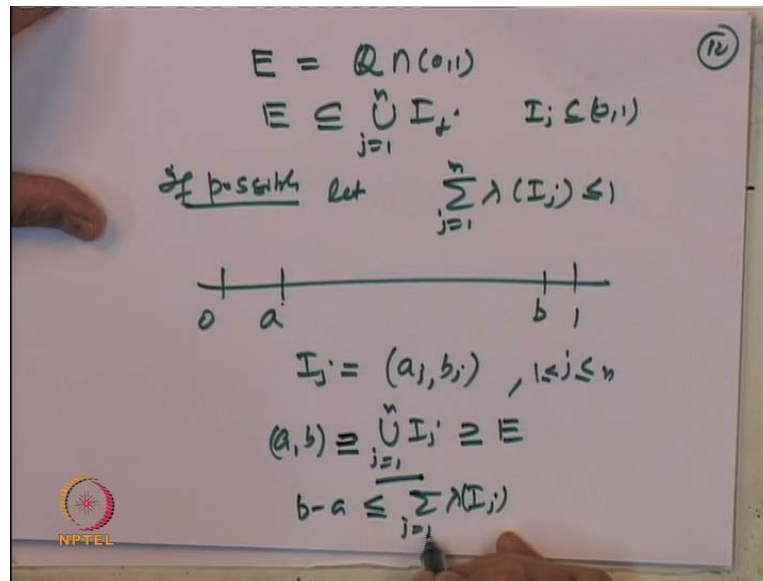 12
E = Q ∩ (0,1)
E ⊆ ⋃_{j=1}^{n} I_j. I_j ⊆ (0,1)
If possible let ∑_{j=1}^{n} λ(I_j) ≤ 1
0 a b 1
I_j = (a_j, b_j) , 1≤j≤n
(a, b) ⊇ ⋃_{j=1}^{n} I_j ⊇ E
b-a ≤ ∑_{j=1} λ(I_j)
NPTEL